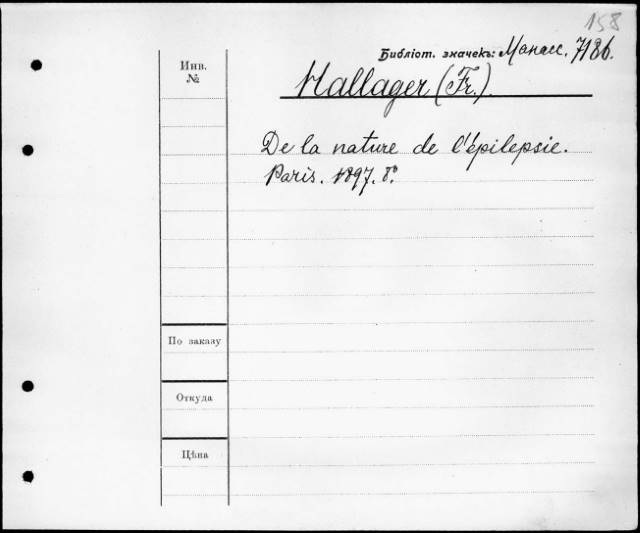 158
Библіот. значекъ: Манасс. 7186.
Инв.
№
Hallager (Fr.).
De la nature de l'épilepsie.
Paris. 1897. 8º
По заказу
Откуда
Цѣна